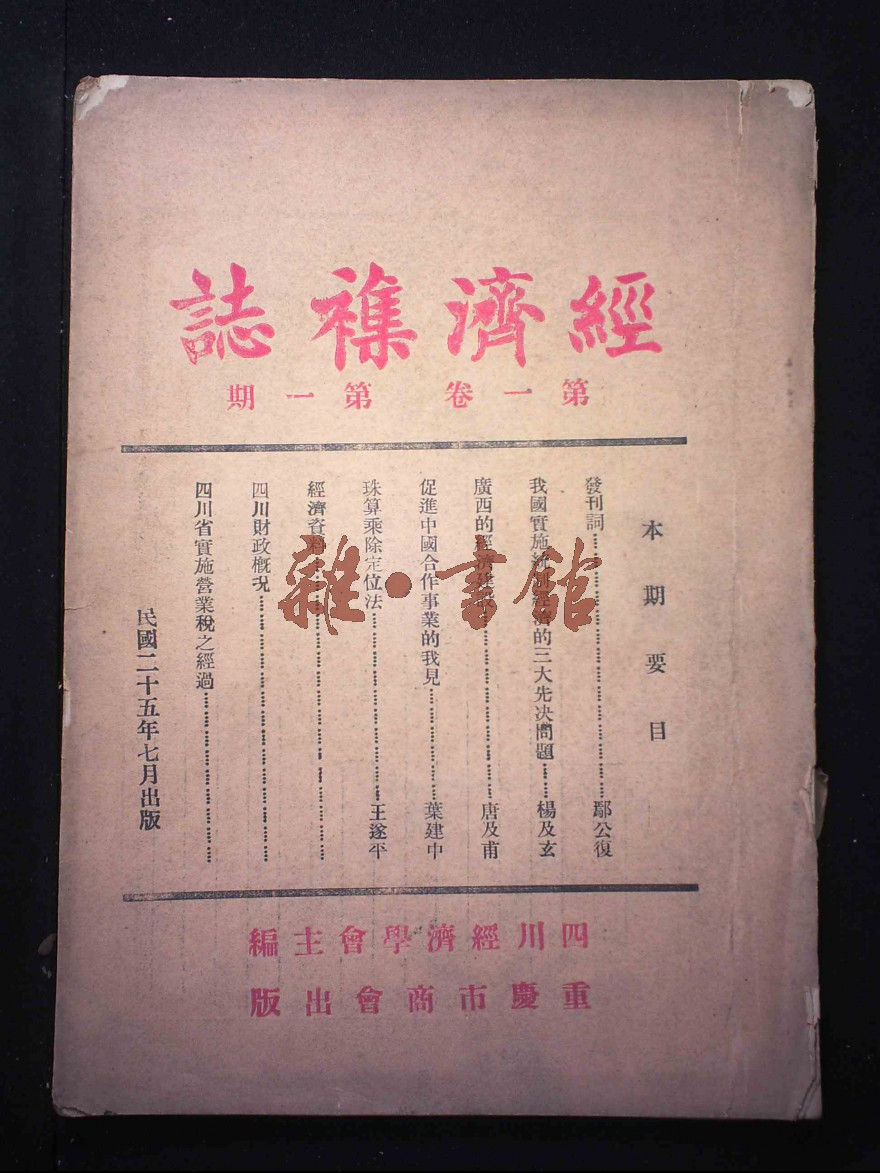 經濟襍誌
第一卷 第一期
本期要目
發刊詞……鄢公復
我國實施統制經濟的三大先决問題……楊及玄
廣西的經濟建設……唐及甫
促進中國合作事業的我見……葉建中
珠算乘除定位法……王遂平
經濟資料……
四川財政概况……
四川省實施營業稅之經過……
民國二十五年七月出版
四川經濟學會主編
重慶市商會出版
雜·書館